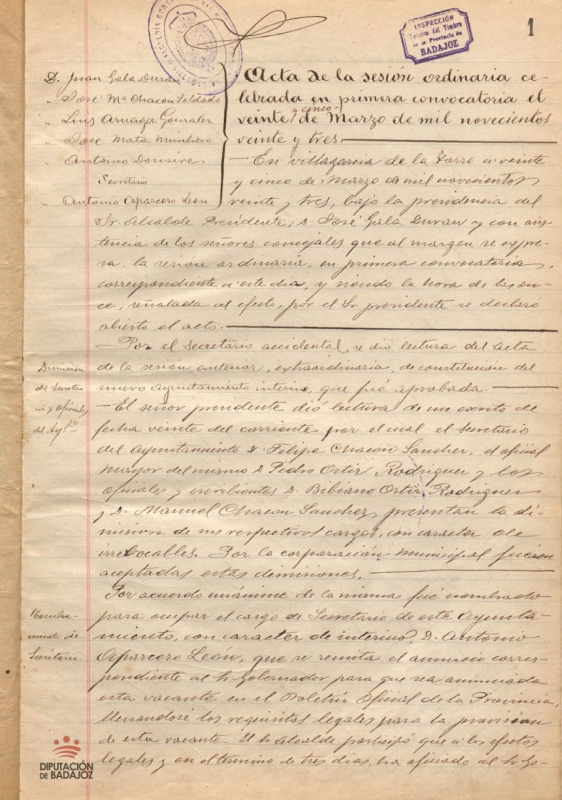 1
INSPECCIÓN
Técnica del Timbre
de la Provincia de
BADAJOZ
D. Juan Gala Duran
" José Mª Chacon Soldado
" Luis Arriaga Gonzalez
" José Mata Mimbrero
" Antonio Donaire
Secretario
" Antonio Aparcero Leon
Acta de la sesión ordinaria ce-
lebrada en primera convocatoria el
veinte y cinco de Marzo de mil novecientos
veinte y tres.
En villagarcia de la Torre a veinte
y cinco de Marzo de mil novecientos
veinte y tres, bajo la presidencia del
Sr. Alcalde Presidente, D José Gala Duran y con asis-
tencia de los señores concejales que al margen se expre-
sa la sesión ordinaria, en primera convocatoria,
correspondiente a este dia, y siendo la hora de las on-
ce, señalada al efecto, por el Sr presidente se declaró
abierto el acto.
Por el Secretario accidental, se dio lectura del acta
de la sesión anterior, extraordinaria, de constitucion del
nuevo Ayuntamiento interino, que fué aprobada.
Dimisión
del Secreta-
rio y oficiales
del Aytº
El señor presidente dió lectura de un escrito de
fecha veinte del corriente por el cual el secretario
del Ayuntamiento D. Felipe Chacon Sanchez, el oficial
mayor del mismo D Pedro Ortiz Rodriguez y los
oficiales y escribientes D. Bibiano Ortiz Rodriguez
y D. Manuel Chacon Sanchez, presentan la di-
mision de sus respectivos cargos, con caracter de
irrebocables. Por la corporación municipal fueron
aceptadas estas dimisiones.
Nombra-
miento de
Secretario
Por acuerdo unánime de la misma fué nombrado
para ocupar el cargo de Secretario de este Ayunta-
miento, con caracter de interino, D. Antonio
Aparcero León, que se remita el anuncio corres-
pondiente al Sr Gobernador para que sea anunciada
esta vacante en el Boletín Oficial de la Provincia,
llenandose los requisitos legales para la provision
de esta vacante. El Sr Alcalde participó que a los efectos
legales y en el termino de tres dias, ha oficiado al Sr Go-
DIPUTACIÓN
DE BADAJOZ